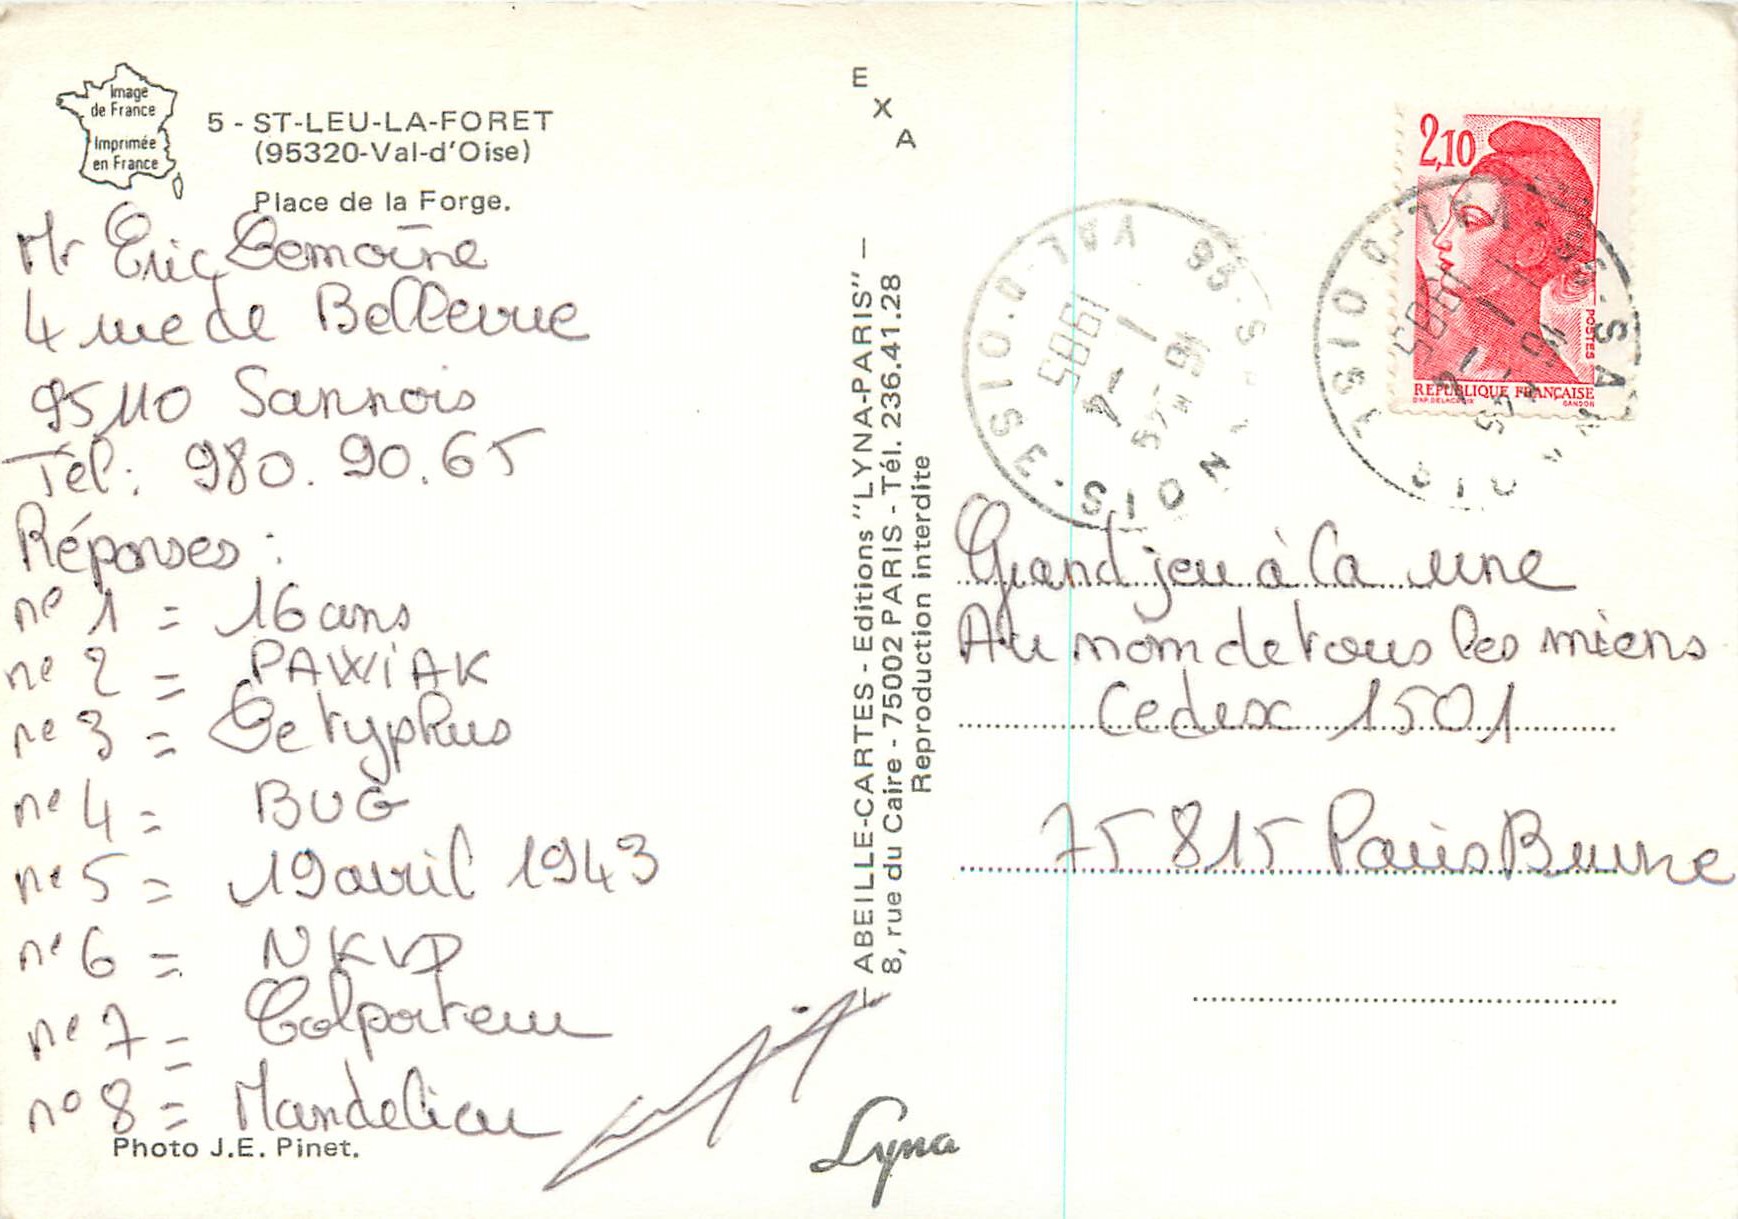 Image
de France
Imprimée
en France
5 - ST-LEU-LA-FORET
(95320-Val-d'Oise)
Place de la Forge.
Mr Eric Lemoine
4 rue de Bellevue
95110 Sannois
Tél: 980. 90. 65
Réponses :
n° 1 = 16 ans
n° 2 = PAWIAK
n° 3 = Le typhus
n° 4 = BUG
n° 5 = 19 avril 1943
n° 6 = NKVD
n° 7 = Colporteur
n° 8 = Mandelieu
Photo J.E. Pinet.
EXA
ABEILLE-CARTES - Editions "LYNA-PARIS" —
8, rue du Caire - 75002 PARIS - Tél. 236.41.28
Reproduction interdite
Lyna
2,10
POSTES
REPUBLIQUE FRANÇAISE
D'AP. DELACROIX
GANDON
95 SANNOIS VAL D'OISE
16 H 45
1 - 4
1985
VAL D'OISE
1985
Grand jeu à la une
Au nom de tous les miens
Cedex 1501
75 815 Paris Brune